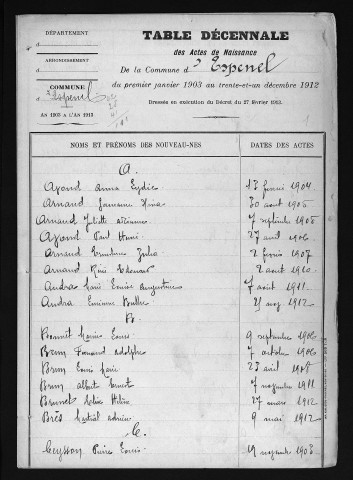 DÉPARTEMENT
d
ARRONDISSEMENT
d
COMMUNE
d'Espenel
AN 1903 A L'AN 1913
TABLE DÉCENNALE
des Actes de Naissance
De la Commune d'Espenel
du premier janvier 1903 au trente-et-un décembre 1912
Dressée en exécution du Décret du 27 février 1913.
1
NOMS ET PRÉNOMS DES NOUVEAU-NÉS DATES DES ACTES
A.
Ayond Anna Eydie 13 février 1904
Arnaud 30 août 1905
Arnaud Juliette 7 septembre 1905
Ayond Paul Henri 27 avril 1906
Arnaud Ernestine Julia 2 février 1907
Arnaud René Edouard 2 août 1910
Andra Marie Louise Augustine 7 août 1911
Andra 1912
B.
Bonnet Marius Louis 9 septembre 1906
Brun Fernand Adolphe 7 octobre 1906
Brun Louis Marie 23 avril 1908
Brun Albert Ernest 7 novembre 1911
Brunet Hélène 27 mars 1912
Brès Martial Adrien 9 mai 1912
C.
Ceysson Pierre Louis 19 novembre 1903